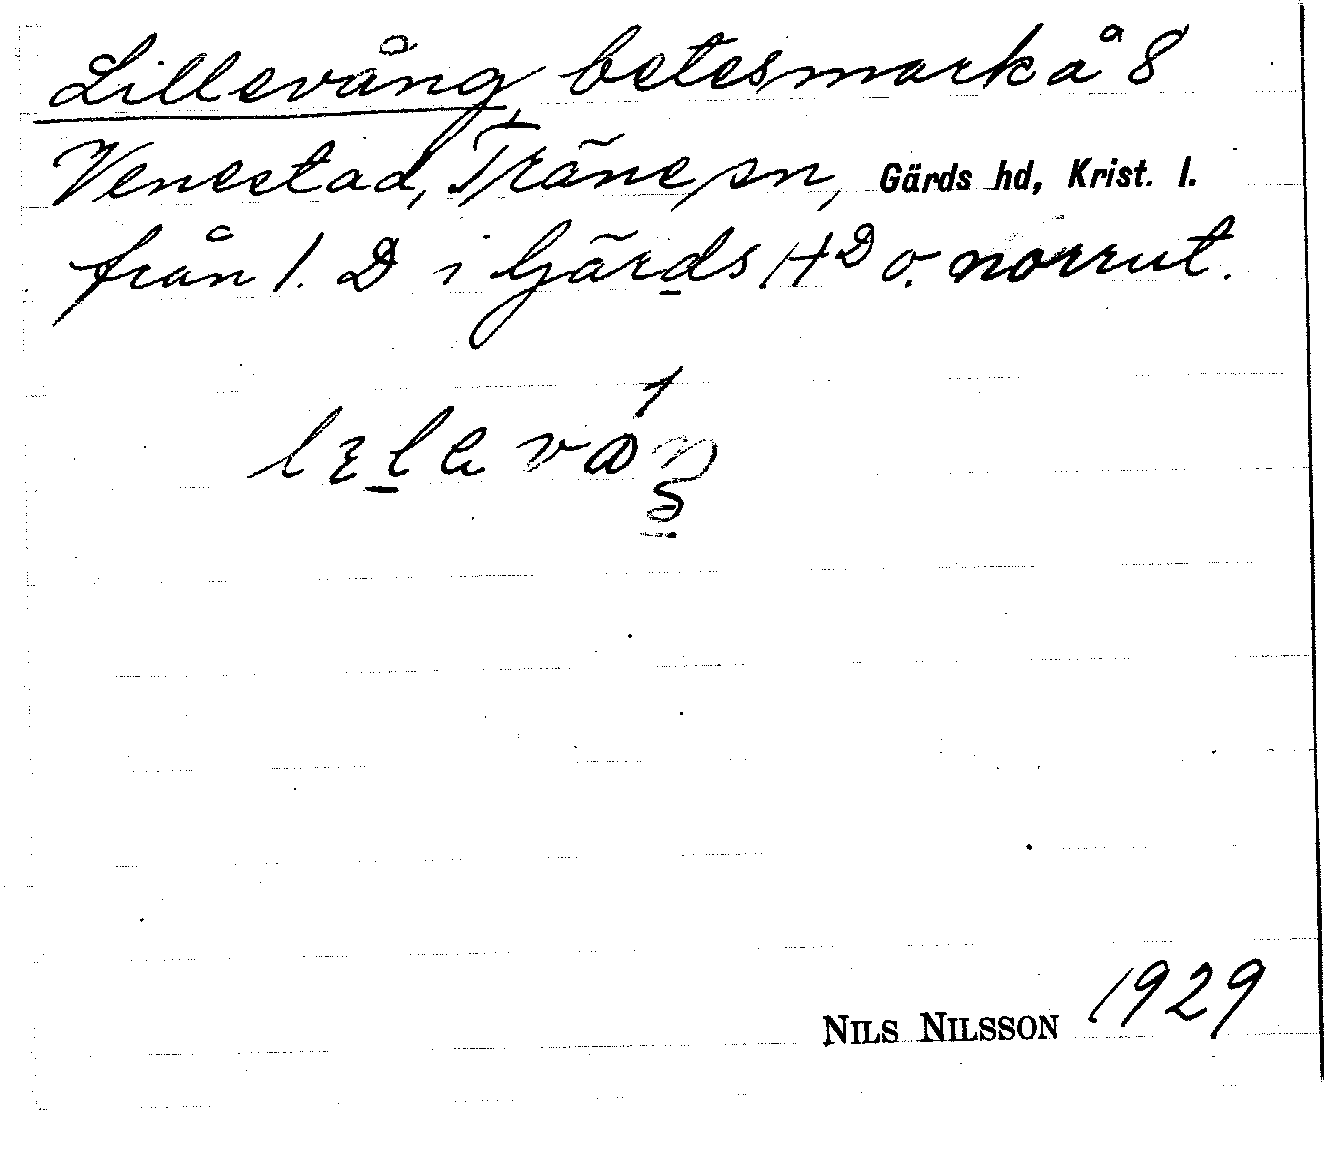 Lillevång, betesmark å 8
Venestad, Träne sn, Gärds hd, Krist. l.
från l. D i Gärds HD o. norrut.
NILS NILSSON 1929